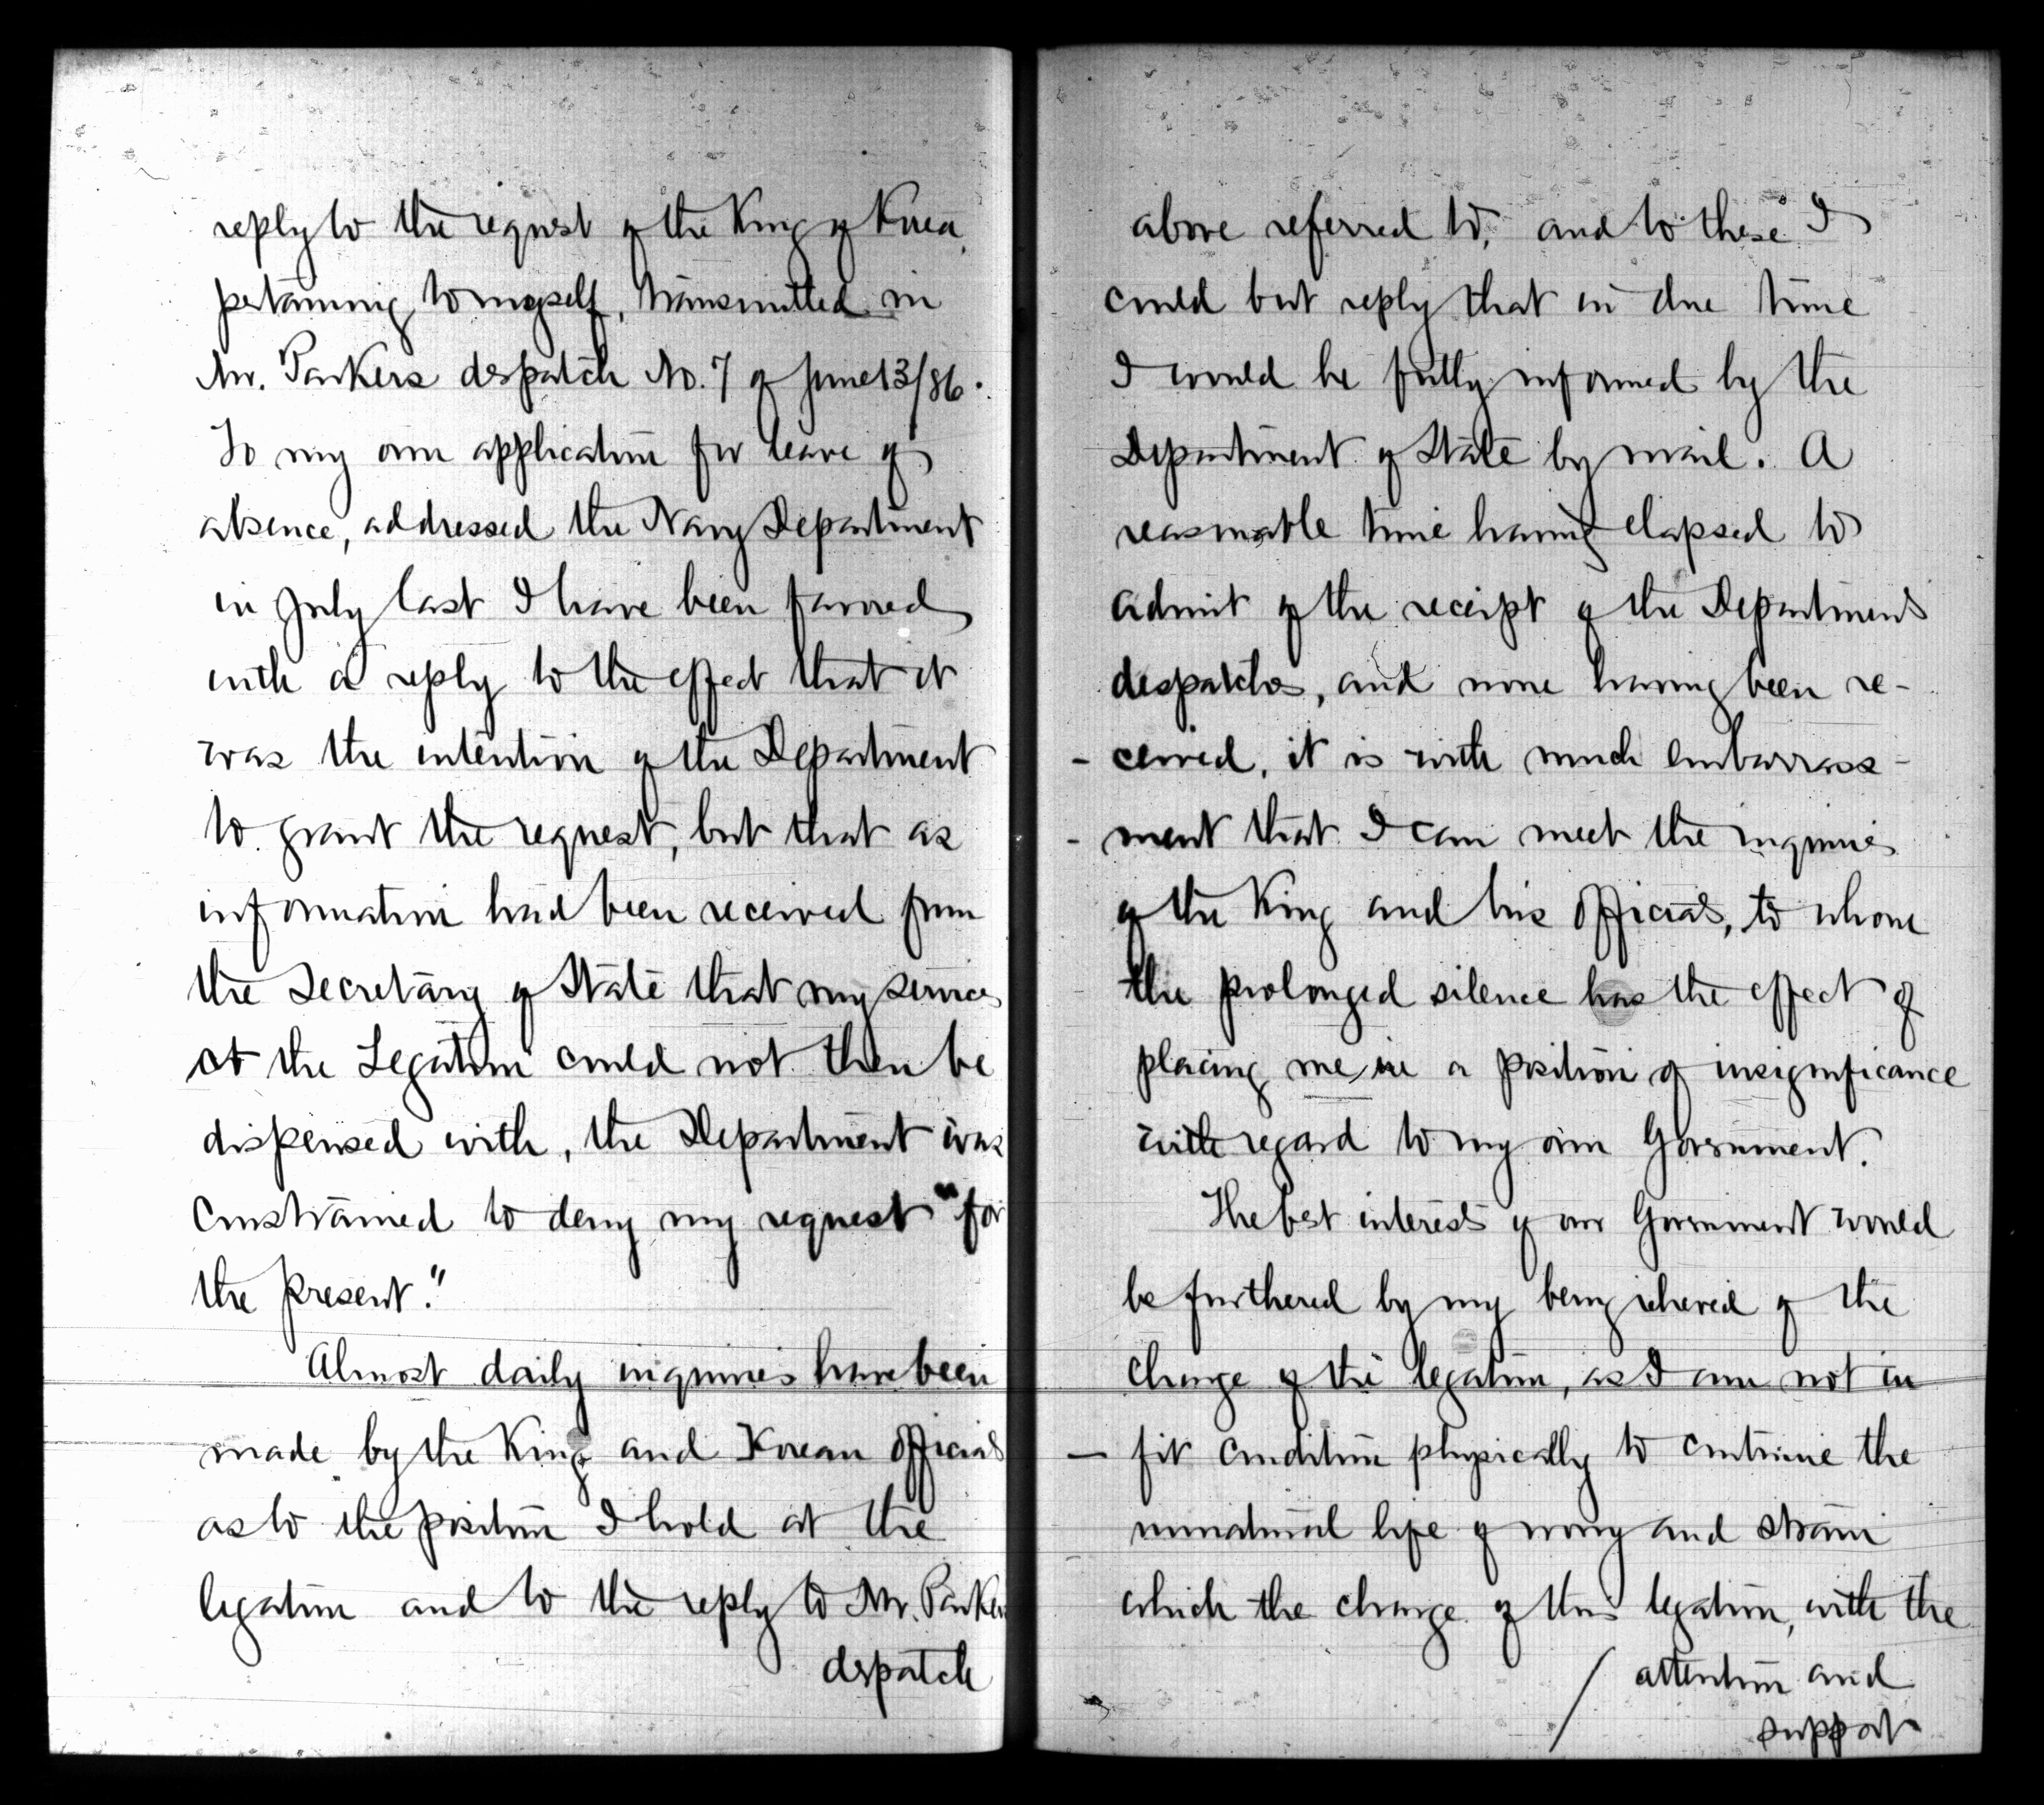 reply to the request of the King of Korea,
pertaining to myself, transmitted in
Mr. Parkers despatch No. 7 of June 13/86.
To my own application for leave of
absence, addressed the Navy Department
in July last I have been favored
with a reply to the effect that it
was the intention of the Department
to grant the request, but that as
information had been received from
the Secretary of State that my services
at the Legation could not then be
dispensed with, the Department was
constrained to deny my request "for
the present."
Almost daily inquiries have been
made by the King and Korean officials
as to the position I hold at the
legation and to the reply to Mr. Parkers
despatch
above referred to, and to these I
could but reply that in due time
I would be fully informed by the
Department of State by mail. A
reasonable time having elapsed to
admit of the receipt of the Departments
despatches, and none having been re-
- ceived, it is with much embarrass-
- ment that I can meet the inquiries
of the King and his officials, to whom
the prolonged silence has the effect of
placing me in a position of insignificance
with regard to my own Government.
The best interests of our Government would
be furthered by my being relieved of the
charge of the legation, as I am not in
- fit condition physically to continue the
unnatural life of worry and strain
which the charge of this legation, with the
/ attention and
support